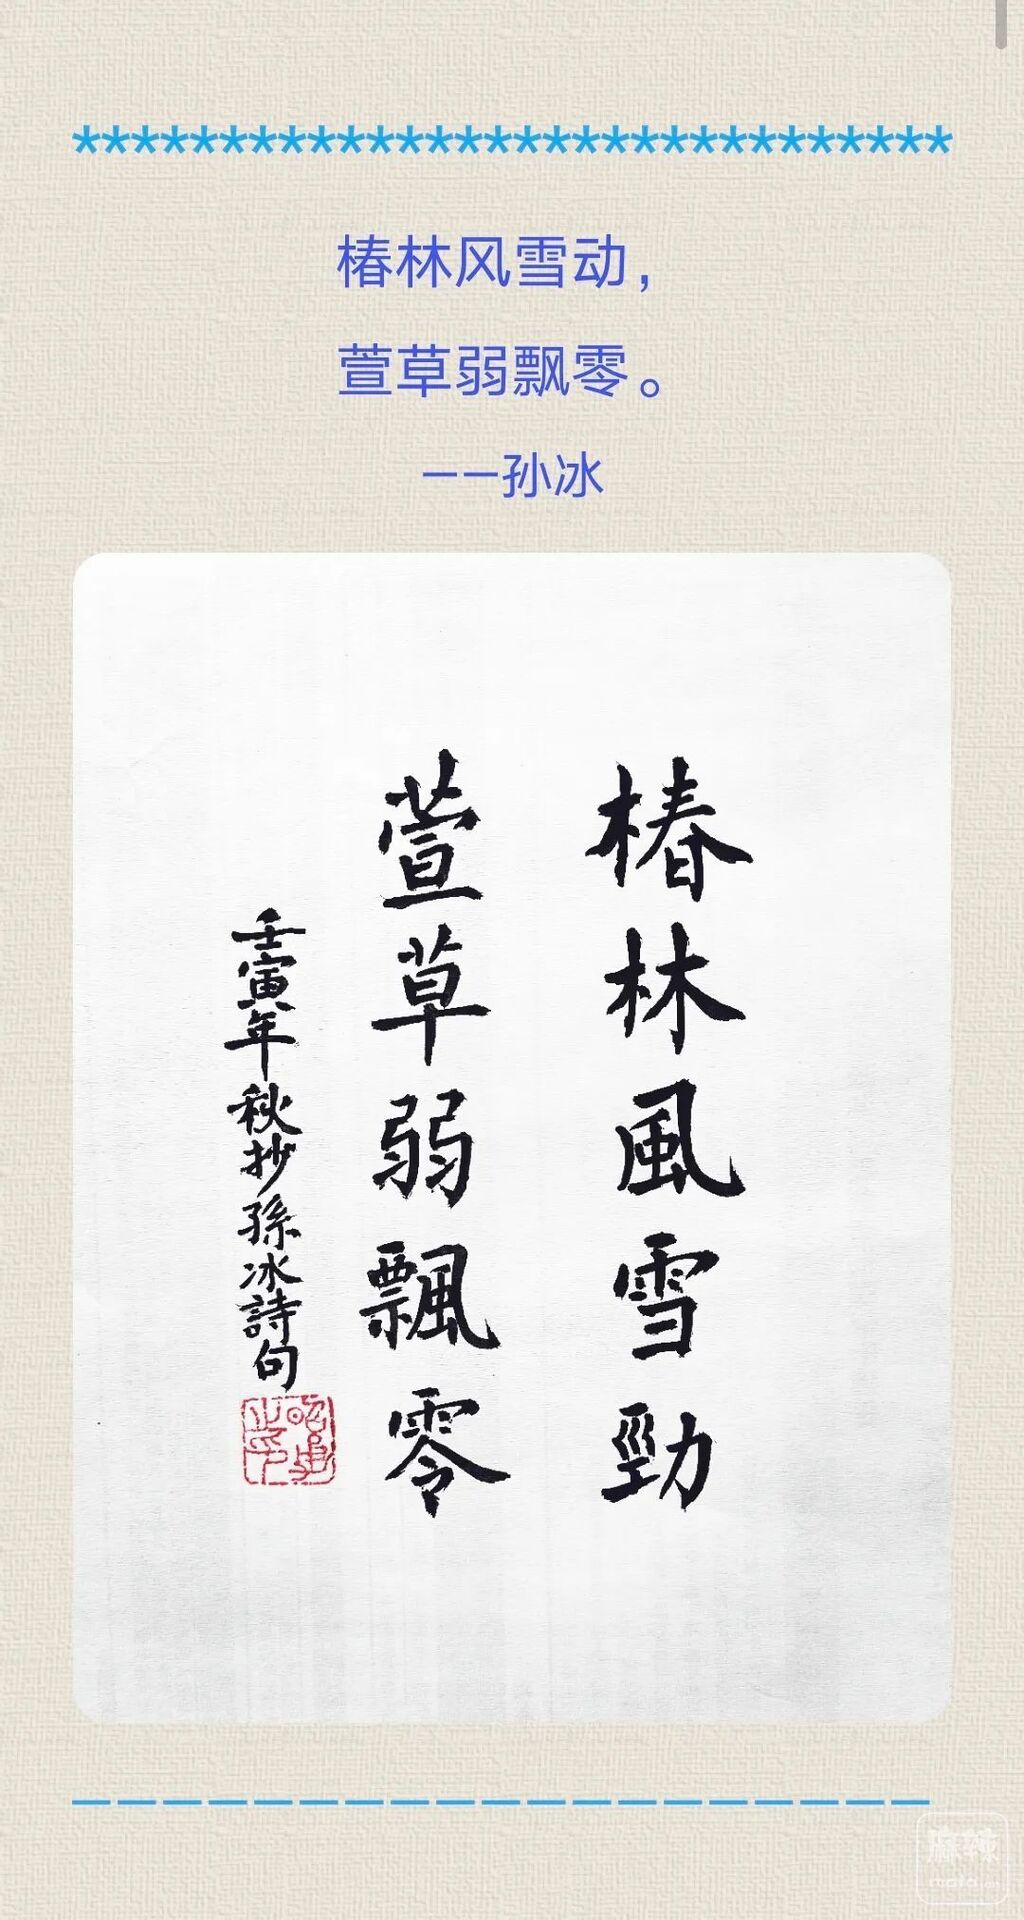 ******************************
椿林风雪动，
萱草弱飘零。
——孙冰
椿林風雪勁
萱草弱飄零
壬寅年秋抄孫冰詩句
麻辣